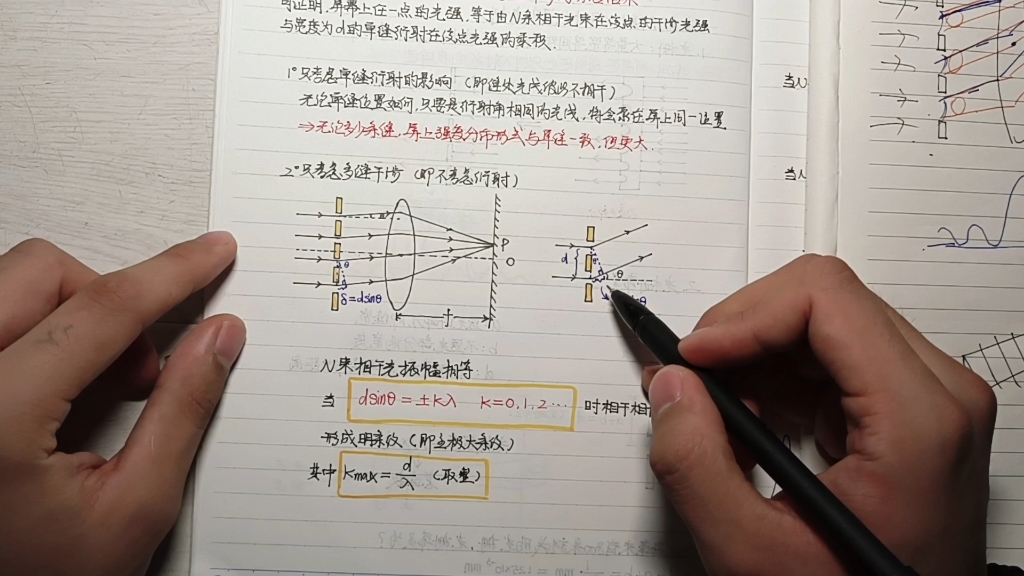 可证明，屏幕上任一点的光强，等于由N条相干光束在该点的干涉光强
与宽度为d的单缝衍射在该点光强的乘积．
1°只考虑单缝衍射的影响（即缝处光线彼此不相干）
无论单缝位置如何，只要是衍射角相同的光线，将会聚在屏上同一位置
⇒无论多少条缝，屏上强度分布形式与单缝一致，但更大．
当N
2°只考虑多缝干涉（即不考虑衍射）
P
O
θ
δ=dsinθ
f
d
θ
θ
N束相干光振幅相等
当 dsinθ=±kλ k=0,1,2… 时相干相
形成明条纹（即主极大条纹）
其中 kmax=d/λ（取整）